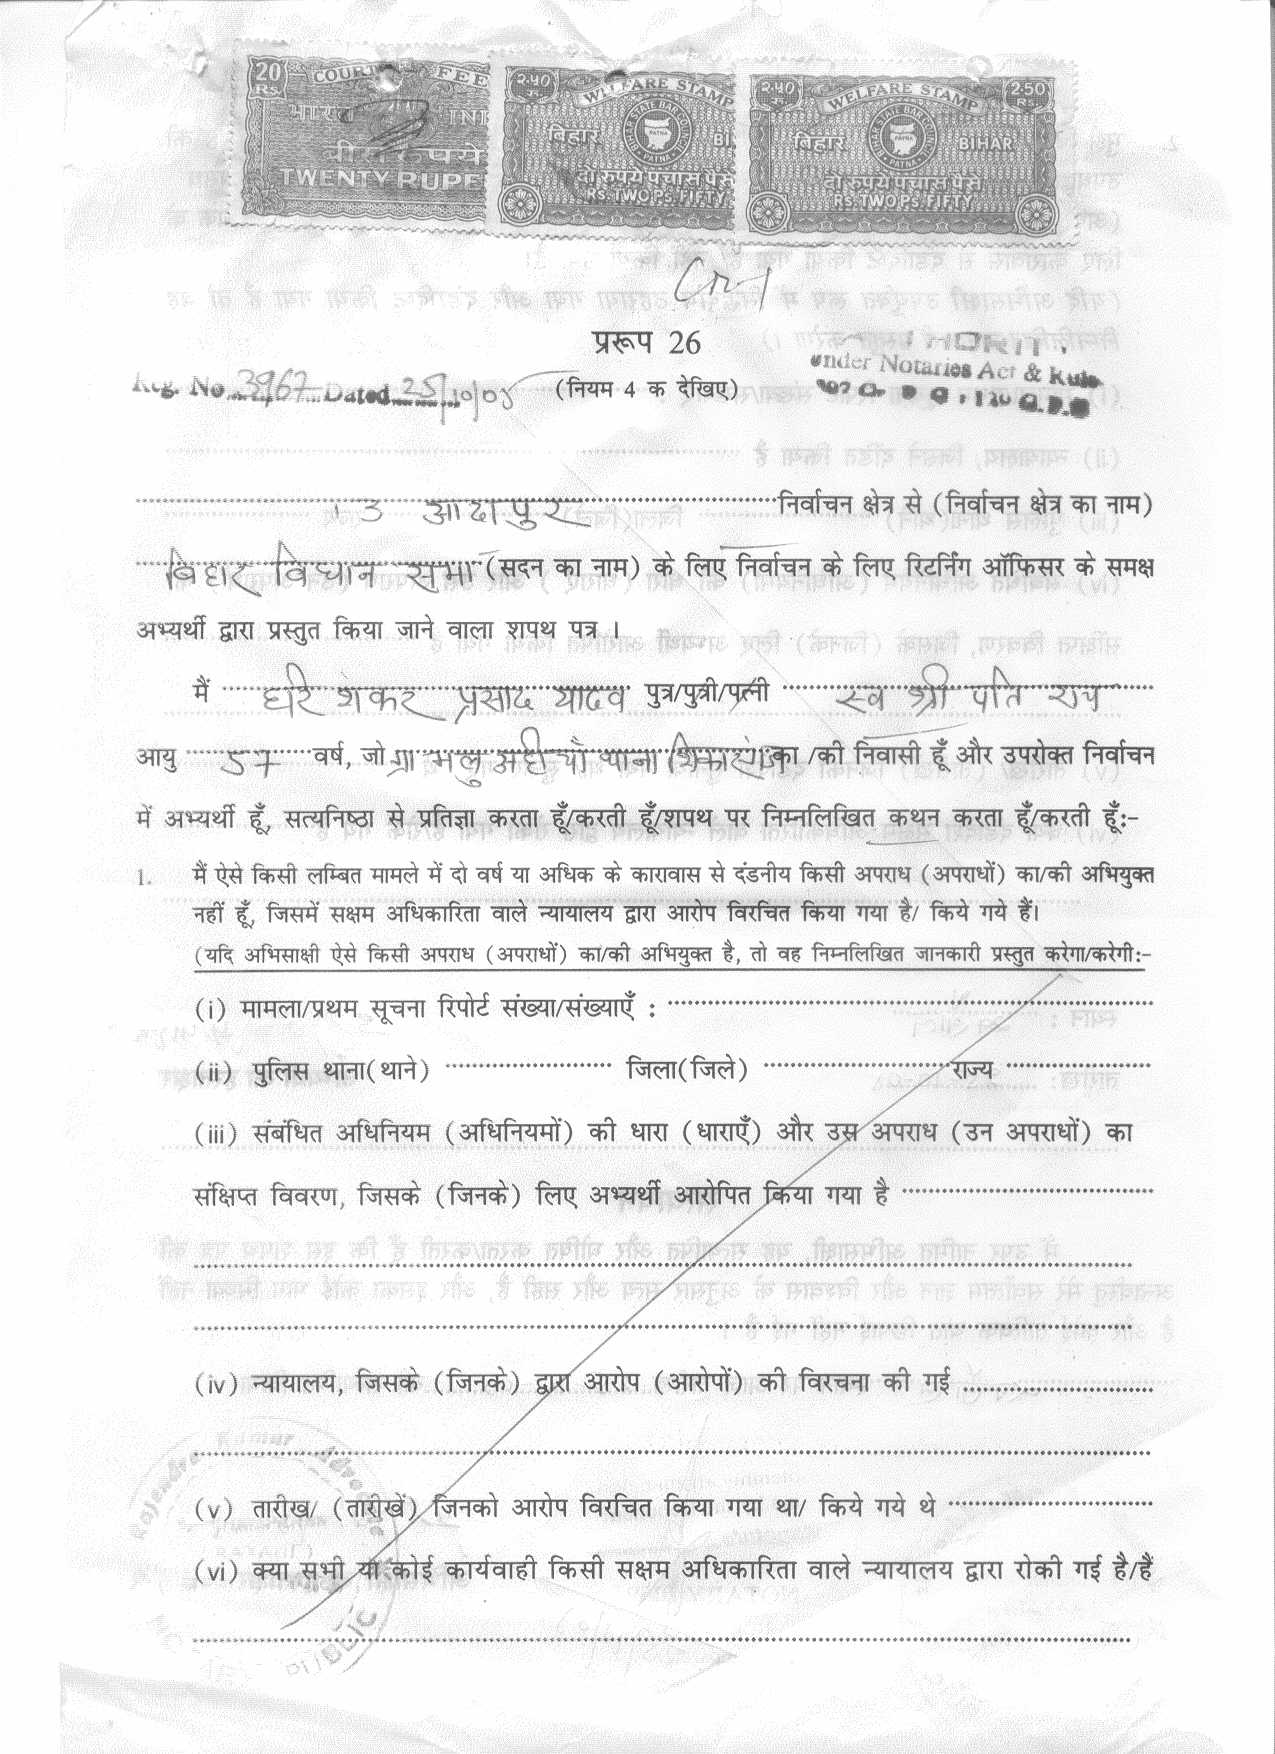 20 Rs. COURT FEE
भारत INDI
बीस रुपये
TWENTY RUPE
२.५० रु. WELFARE STAMP
बिहार BIHAR STATE BAR COUNCIL PATNA BI
दो रुपये पचास पैसे
RS. TWO PS. FIFTY
२.५० रु. WELFARE STAMP 2.50 RS.
बिहार BIHAR STATE BAR COUNCIL PATNA BIHAR
दो रुपये पचास पैसे
RS. TWO PS. FIFTY
प्ररूप 26
under Notaries Act & Rule
Reg. No 3967 Dated 25/10/05 (नियम 4 क देखिए)
13 आदापुर निर्वाचन क्षेत्र से (निर्वाचन क्षेत्र का नाम)
बिहार विधान सभा (सदन का नाम) के लिए निर्वाचन के लिए रिटर्निंग ऑफिसर के समक्ष
अभ्यर्थी द्वारा प्रस्तुत किया जाने वाला शपथ पत्र ।
मैं हरि शंकर प्रसाद यादव पुत्र/पुत्री/पत्नी स्व श्री पति राय
आयु 57 वर्ष, जो ग्रा थाना का /की निवासी हूँ और उपरोक्त निर्वाचन
में अभ्यर्थी हूँ, सत्यनिष्ठा से प्रतिज्ञा करता हूँ/करती हूँ/शपथ पर निम्नलिखित कथन करता हूँ/करती हूँ:-
1. मैं ऐसे किसी लम्बित मामले में दो वर्ष या अधिक के कारावास से दंडनीय किसी अपराध (अपराधों) का/की अभियुक्त
नहीं हूँ, जिसमें सक्षम अधिकारिता वाले न्यायालय द्वारा आरोप विरचित किया गया है/ किये गये हैं।
(यदि अभिसाक्षी ऐसे किसी अपराध (अपराधों) का/की अभियुक्त है, तो वह निम्नलिखित जानकारी प्रस्तुत करेगा/करेगी:-
(i) मामला/प्रथम सूचना रिपोर्ट संख्या/संख्याएँ :
(ii) पुलिस थाना(थाने) जिला(जिले) राज्य
(iii) संबंधित अधिनियम (अधिनियमों) की धारा (धाराएँ) और उस अपराध (उन अपराधों) का
संक्षिप्त विवरण, जिसके (जिनके) लिए अभ्यर्थी आरोपित किया गया है
(iv) न्यायालय, जिसके (जिनके) द्वारा आरोप (आरोपों) की विरचना की गई
(v) तारीख/ (तारीखें) जिनको आरोप विरचित किया गया था/ किये गये थे
(vi) क्या सभी या कोई कार्यवाही किसी सक्षम अधिकारिता वाले न्यायालय द्वारा रोकी गई है/हैं